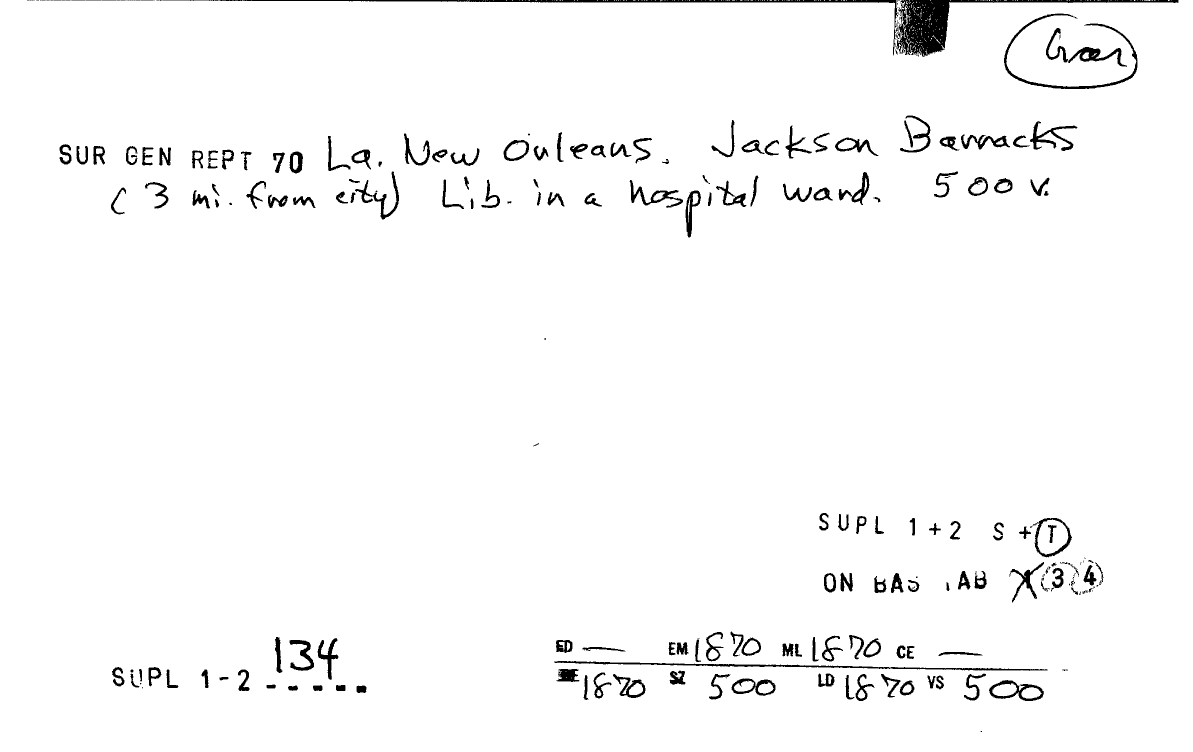 SUR GEN REPT 70 La. New Orleans. Jackson Barracks
(3 mi. from city) Lib. in a hospital ward. 500 v.
SUPL 1+2 S+T
ON BAS TAB X 3 4
SUPL 1-2 134
ED — EM 1870 ML 1870 CE —
1870 SZ 500 LD 1870 VS 500